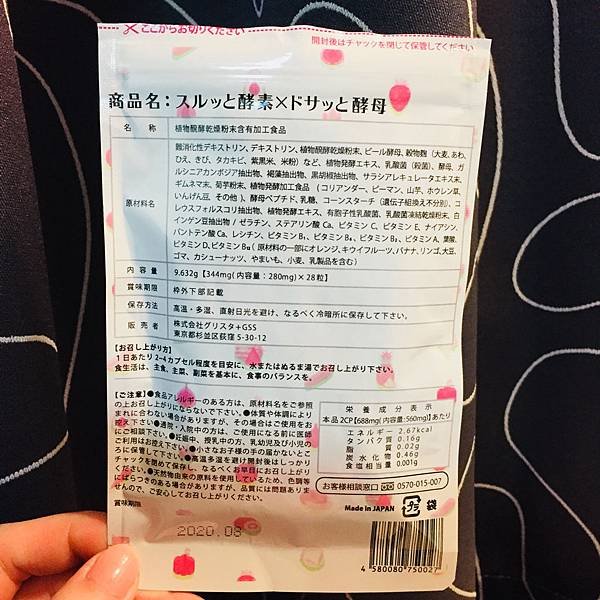 ここからお切りください
開封後はチャックを閉じて保管してください
商品名：スルッと酵素×ドサッと酵母
名　称　植物醗酵乾燥粉末含有加工食品
原材料名
難消化性デキストリン、デキストリン、植物醗酵乾燥粉末、ビール酵母、穀物麹（大麦、あわ、
ひえ、きび、タカキビ、紫黒米、米粉）など、植物発酵エキス、乳酸菌（殺菌）、酵母、ガ
ルシニアカンボジア抽出物、褐藻抽出物、黒胡椒抽出物、サラシアレキュレータエキス末、
ギムネマ末、菊芋粉末、植物発酵加工食品（コリアンダー、ピーマン、山芋、ホウレン草、
いんげん豆、その他）、酵母ペプチド、乳糖、コーンスターチ（遺伝子組換え不分別）、コ
レウスフォルスコリ抽出物、植物発酵エキス、有胞子性乳酸菌、乳酸菌凍結乾燥粉末、白
インゲン豆抽出物 / ゼラチン、ステアリン酸 Ca、ビタミン C、ビタミン E、ナイアシン、
パントテン酸 Ca、レシチン、ビタミン B₁、ビタミン B₆、ビタミン B₂、ビタミン A、葉酸、
ビタミン D、ビタミン B₁₂（原材料の一部にオレンジ、キウイフルーツ、バナナ、リンゴ、大豆、
ゴマ、カシューナッツ、やまいも、小麦、乳製品を含む）
内 容 量　9.632g【344mg（内容量：280mg）×28粒】
賞味期限　枠外下部記載
保存方法　高温・多湿、直射日光を避け、なるべく冷暗所に保存して下さい。
販 売 者　株式会社グリスタ+GSS
東京都杉並区荻窪 5-30-12
【お召し上がり方】
1日あたり 2~4カプセル程度を目安に、水またはぬるま湯でお召し上がり下さい。
食生活は、主食、主菜、副菜を基本に、食事のバランスを。
【ご注意】●食品アレルギーのある方は、原材料名をご参照
の上お召し上がりにならないで下さい。●体質や体調により
まれに合わない場合がありますが、その場合はご使用をお
控え下さい●通院・入院中の方は、ご使用になる前に医師
にご相談下さい。●妊娠中、授乳中の方、乳幼児及び小児の
ご利用はお控え下さい。●小さなお子様の手の届かないとこ
ろに保管して下さい。●高温多湿を避け開封後はしっかり
チャックを閉めて保存し、なるべくお早目にお召し上がりく
ださい。●天然物由来の原料を使用しているため、色調等
にばらつきのある場合がありますが、品質には問題ありま
せんので、ご安心してお召し上がりください。
賞味期限
2020.08
栄 養 成 分 表 示
本品2CP【688mg（内容量:560mg）】あたり
エネルギー　2.67kcal
タンパク質　0.16g
脂　質　0.02g
炭 水 化 物　0.46g
食塩相当量　0.001g
お客様相談窓口　0570-015-007
Made In JAPAN
プラ 袋
4 580080 750027